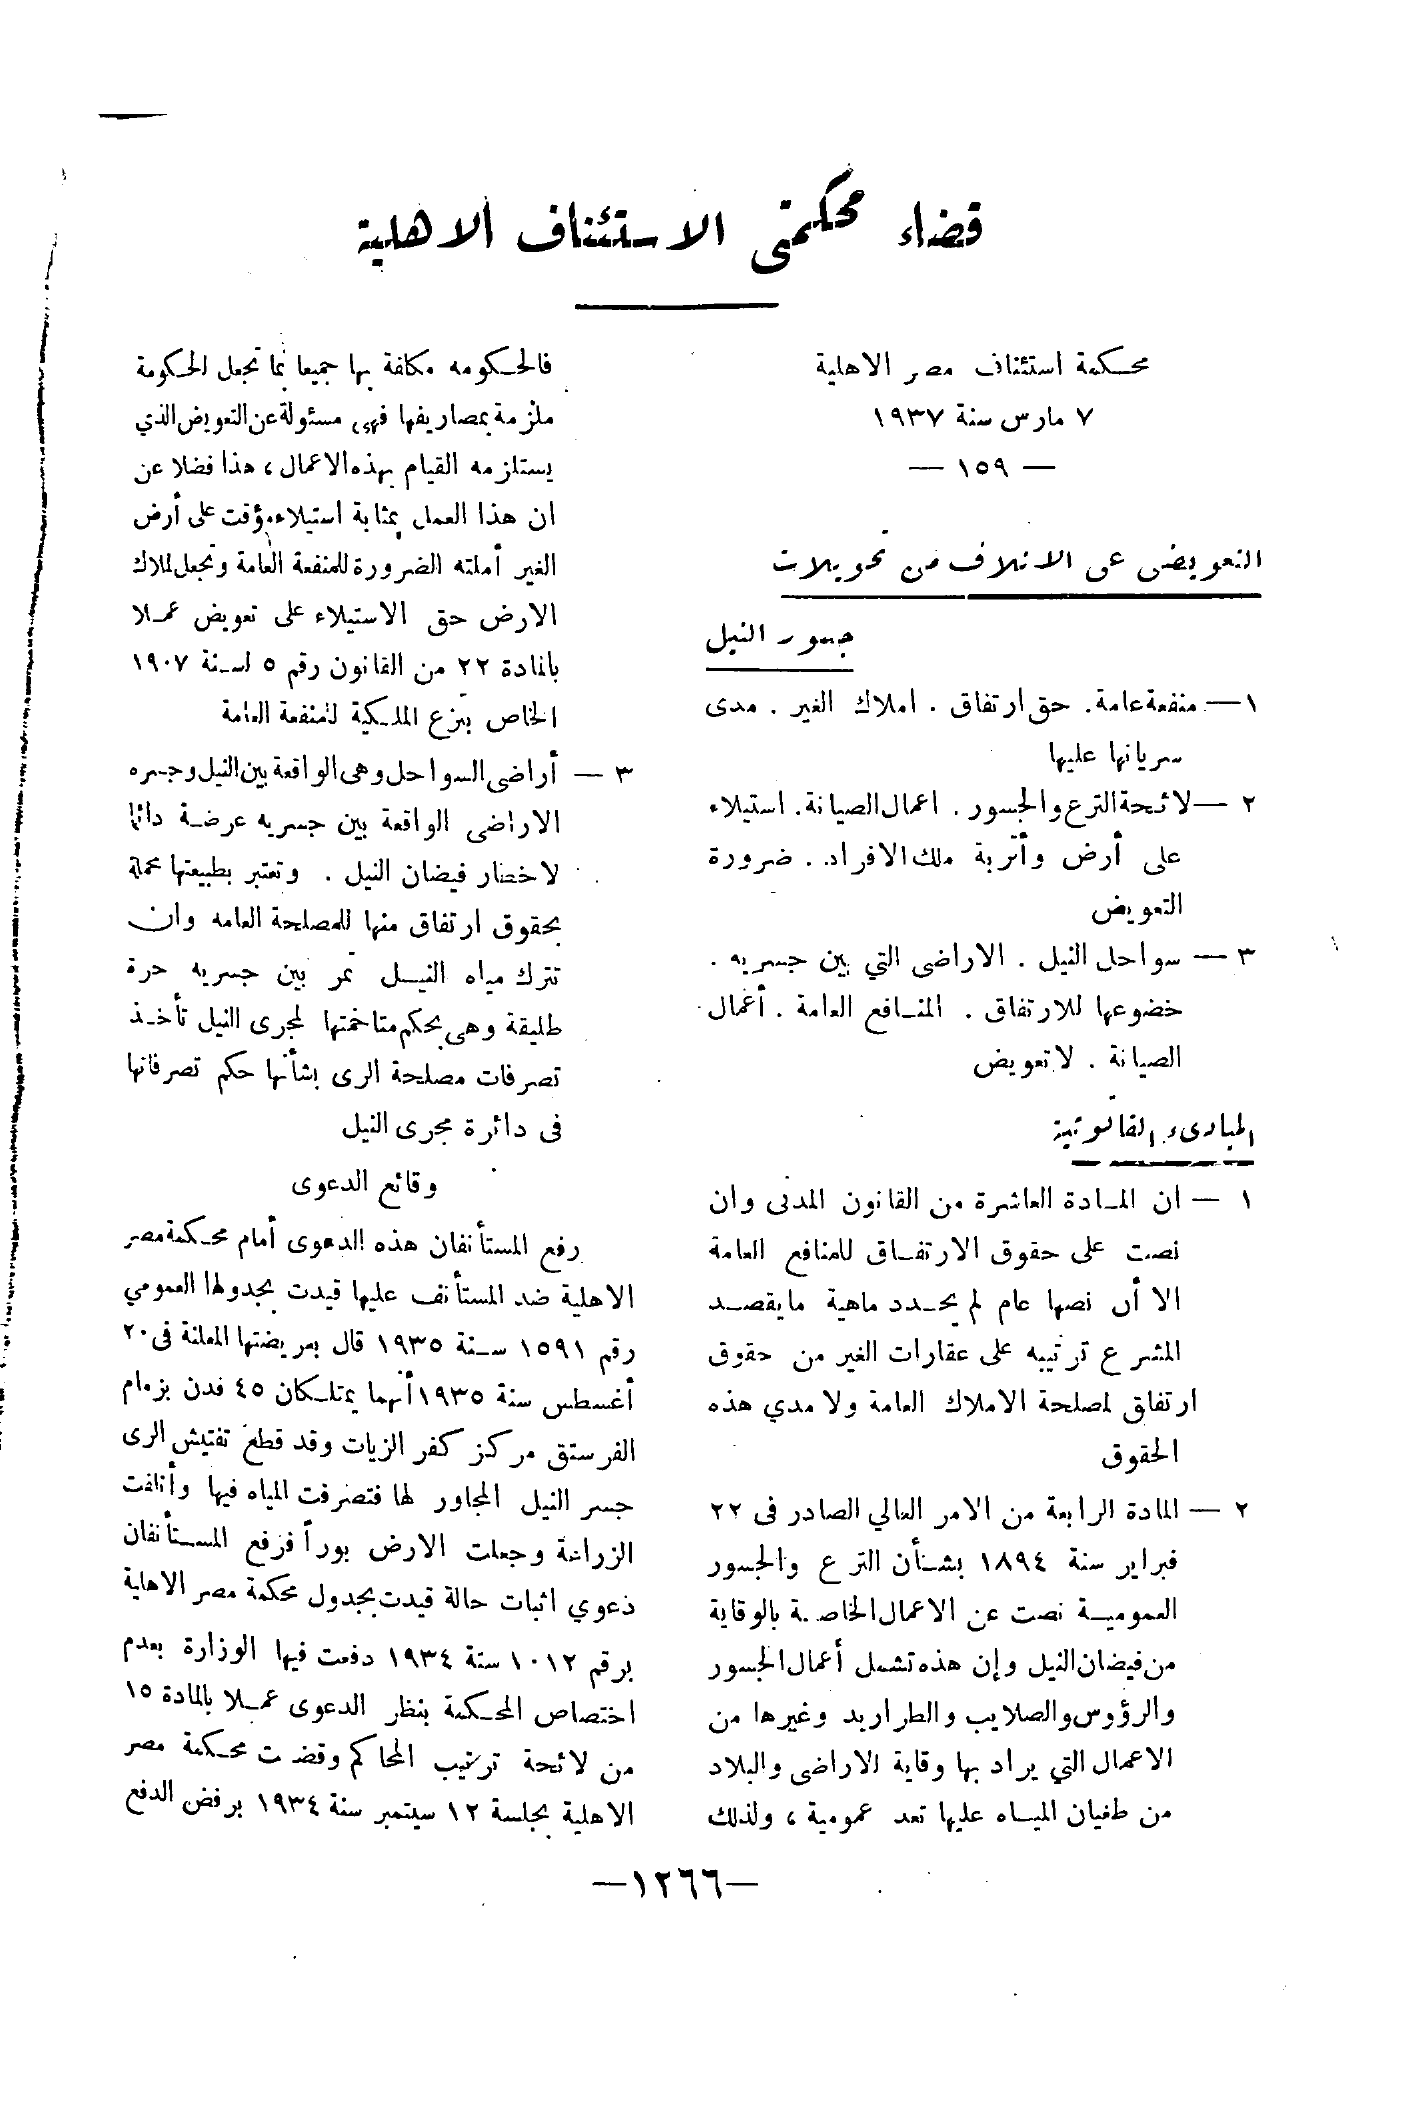 قضاء محكمتى الاستئناف الاهلية
محكمة استئناف مصر الاهلية
٧ مارس سنة ١٩٣٧
— ١٥٩ —
التعويض عن الاتلاف من تحويلات
جسور النيل
١ — منفعة عامة. حق ارتفاق. املاك الغير. مدى
سريانها عليها
٢ — لائحة الترع والجسور. اعمال الصيانة. استيلاء
على أرض وأتربة ملك الافراد. ضرورة
التعويض
٣ — سواحل النيل. الاراضى التي بين جسريه.
خضوعها للارتفاق. المنافع العامة. أعمال
الصيانة. لا تعويض
المبادىء القانونية
١ — ان المادة العاشرة من القانون المدنى وان
نصت على حقوق الارتفاق للمنافع العامة
الا أن نصها عام لم يحدد ماهية ما يقصد
المشرع ترتيبه على عقارات الغير من حقوق
ارتفاق لمصلحة الاملاك العامة ولا مدي هذه
الحقوق
٢ — المادة الرابعة من الامر العالي الصادر فى ٢٢
فبراير سنة ١٨٩٤ بشأن الترع والجسور
العمومية نصت عن الاعمال الخاصة بالوقاية
من فيضان النيل وإن هذه تشمل أعمال الجسور
والرؤوس والصلايب والطراريد وغيرها من
الاعمال التي يراد بها وقاية الاراضى والبلاد
من طغيان المياه عليها تعد عمومية ، ولذلك
فالحكومه مكلفة بها جميعا بما تجعل الحكومة
ملزمة بمصاريفها فهى مسئولة عن التعويض الذي
يستلزمه القيام بهذه الاعمال ، هذا فضلا عن
ان هذا العمل بمثابة استيلاء مؤقت على أرض
الغير أملته الضرورة للمنفعة العامة وتجعل لملاك
الارض حق الاستيلاء على تعويض عملا
بالمادة ٢٢ من القانون رقم ٥ لسنة ١٩٠٧
الخاص بنزع الملكية للمنفعة العامة
٣ — أراضى السواحل وهى الواقعة بين النيل وجسره
الاراضى الواقعة بين جسريه عرضة دائما
لاخطار فيضان النيل. وتعتبر بطبيعتها محملة
بحقوق ارتفاق منها للمصلحة العامه وان
تترك مياه النيل تمر بين جسريه حرة
طليقة وهى بحكم متاخمتها لمجرى النيل تأخذ
تصرفات مصلحة الرى بشأنها حكم تصرفاتها
فى دائرة مجرى النيل
وقائع الدعوى
رفع المستأنفان هذه الدعوى أمام محكمة مصر
الاهلية ضد المستأنف عليها قيدت بجدولها العمومي
رقم ١٥٩١ سنة ١٩٣٥ قال بعريضتها المعلنة فى ٢٠
أغسطس سنة ١٩٣٥ أنهما يمتلكان ٤٥ فدن بزمام
الفرستق مركز كفر الزيات وقد قطع تفتيش الرى
جسر النيل المجاور لها فتصرفت المياه فيها وأتلفت
الزراعة وجعلت الارض بوراً فرفع المستأنفان
دعوي اثبات حالة قيدت بجدول محكمة مصر الاهلية
برقم ١٠١٢ سنة ١٩٣٤ دفعت فيها الوزارة بعدم
اختصاص المحكمة بنظر الدعوى عملا بالمادة ١٥
من لائحة ترتيب المحاكم وقضت محكمة مصر
الاهلية بجلسة ١٢ سبتمبر سنة ١٩٣٤ برفض الدفع
—١٢٦٦—